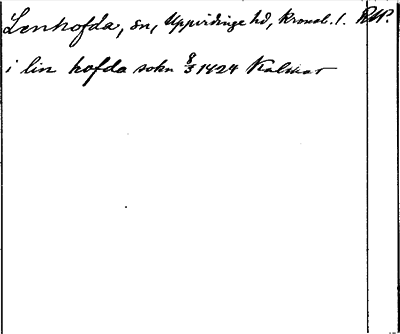 Lenhofda, sn, Uppvidinge hd, Kronob. l. RAP.
i lin hofda sokn 8/3 1424 Kalmar